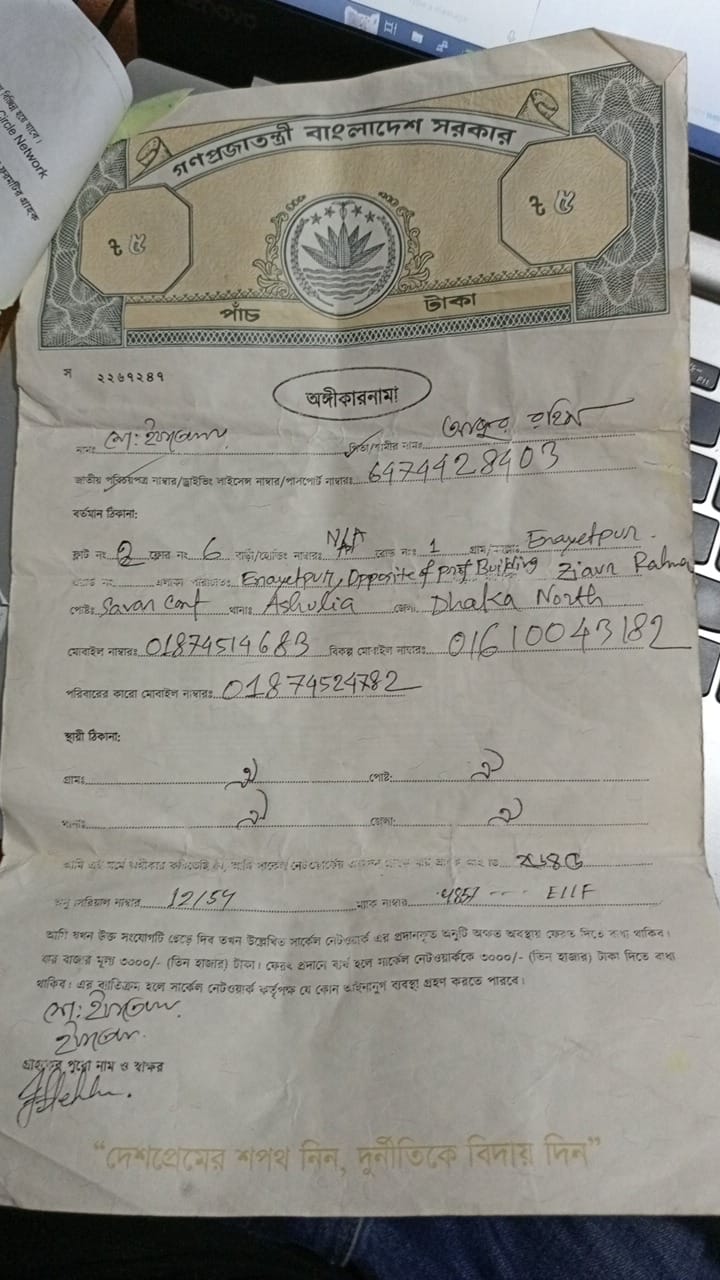 Lenovo
বিচ্ছিন্ন হয়ে যাবে।
Circle Network
গ্রাহক
গণপ্রজাতন্ত্রী বাংলাদেশ সরকার
৳ ৫
৳ ৫
পাঁচ টাকা
স ২২৬৭২৪৭
অঙ্গীকারনামা
নামঃ মো: পিতা/স্বামীর নামঃ আব্দুর রহিম
জাতীয় পরিচয়পত্র নাম্বার/ড্রাইভিং লাইসেন্স নাম্বার/পাসপোর্ট নাম্বারঃ 6474428403
বর্তমান ঠিকানা:
ফ্লাট নং 2 ফ্লোর নং 6 বাড়ী/হোল্ডিং নাম্বারঃ N/A রোড নং: 1 গ্রাম/ Enayetpur.
নং এলাকা পরিচিতঃ Enayetpur, Opposite of Building Ziaur Rahma
পোষ্টঃ Savar Cant থানাঃ Ashulia জেলা Dhaka North
মোবাইল নাম্বারঃ 01874514683 বিকল্প মোবাইল নাম্বারঃ 01610043182
পরিবারের কারো মোবাইল নাম্বারঃ 01874524782
স্থায়ী ঠিকানা:
গ্রামঃ ঐ পোষ্ট: ঐ
থানাঃ ঐ জেলা: ঐ
আমি এই মর্মে অঙ্গীকার করিতেছি যে, আমি সার্কেল নেটওয়ার্কের
অনু সিরিয়াল নাম্বার 12/54 ম্যাক নাম্বার E11F
আমি যখন উক্ত সংযোগটি ছেড়ে দিব তখন উল্লেখিত সার্কেল নেটওয়ার্ক এর প্রদানকৃত অনুটি অক্ষত অবস্থায় ফেরত দিতে বাধ্য থাকিব।
যার বাজার মূল্য ৩০০০/- (তিন হাজার) টাকা। ফেরৎ প্রদানে ব্যর্থ হলে সার্কেল নেটওয়ার্ককে ৩০০০/- (তিন হাজার) টাকা দিতে বাধ্য
থাকিব। এর ব্যতিক্রম হলে সার্কেল নেটওয়ার্ক কর্তৃপক্ষ যে কোন আইনানুগ ব্যবস্থা গ্রহণ করতে পারবে।
মো:
গ্রাহকের পুরো নাম ও স্বাক্ষর
“দেশপ্রেমের শপথ নিন, দুর্নীতিকে বিদায় দিন”